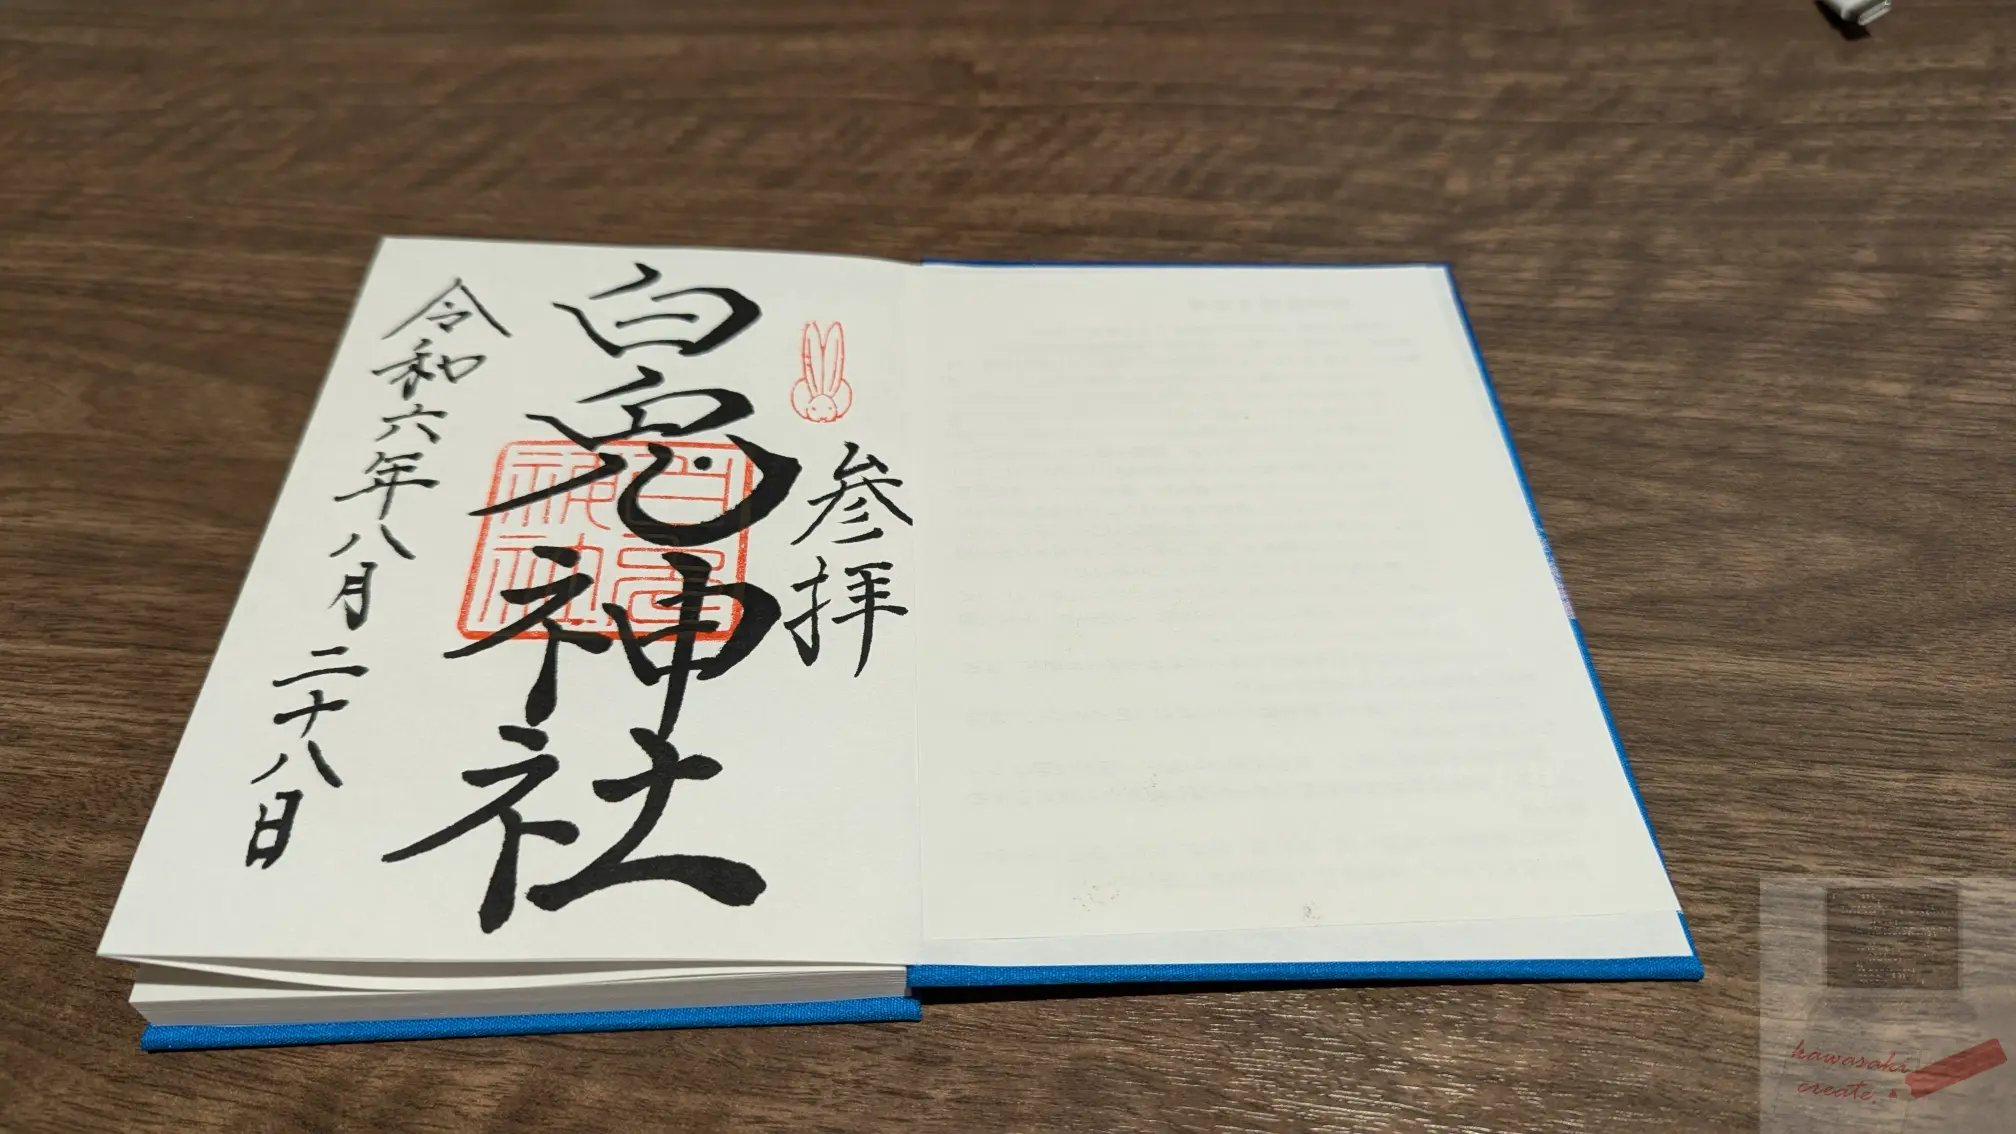 参拝
白兎神社
令和六年八月二十八日
kawasaki
create.